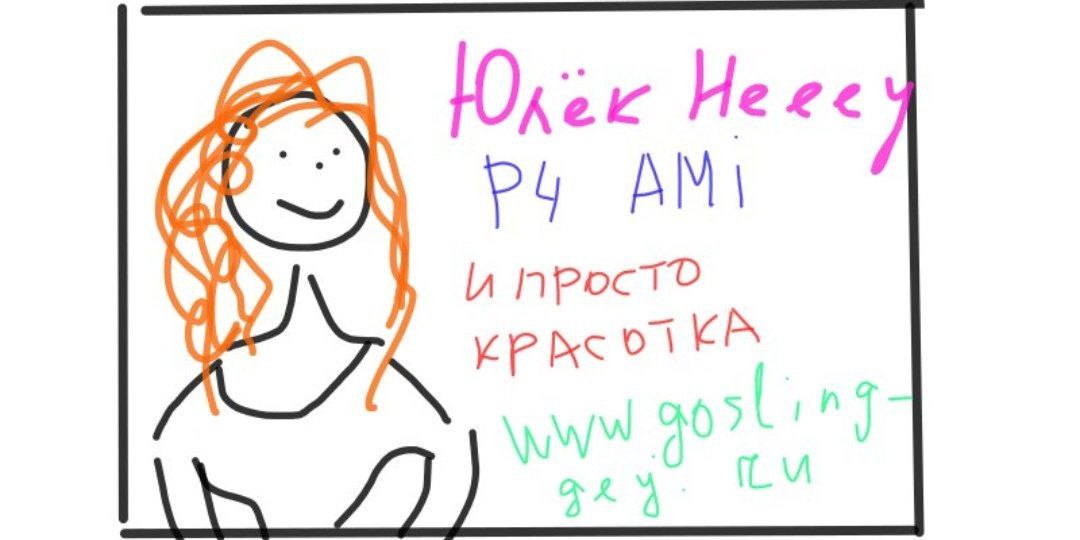 Юлёк Нееey
P4 AMi
и просто
красотка
www.gosling-
gey.ru